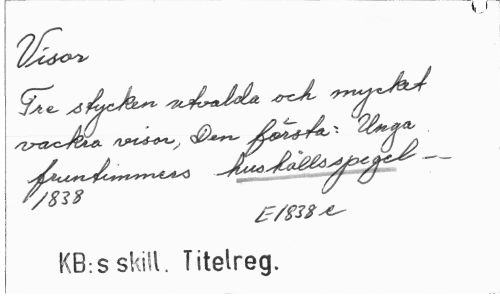 Visor
Tre stycken utvalda och mycket
vackra visor, Den första: Unga
fruntimmers hushållsspegel --
1838
E1838 c
KB:s skill. Titelreg.